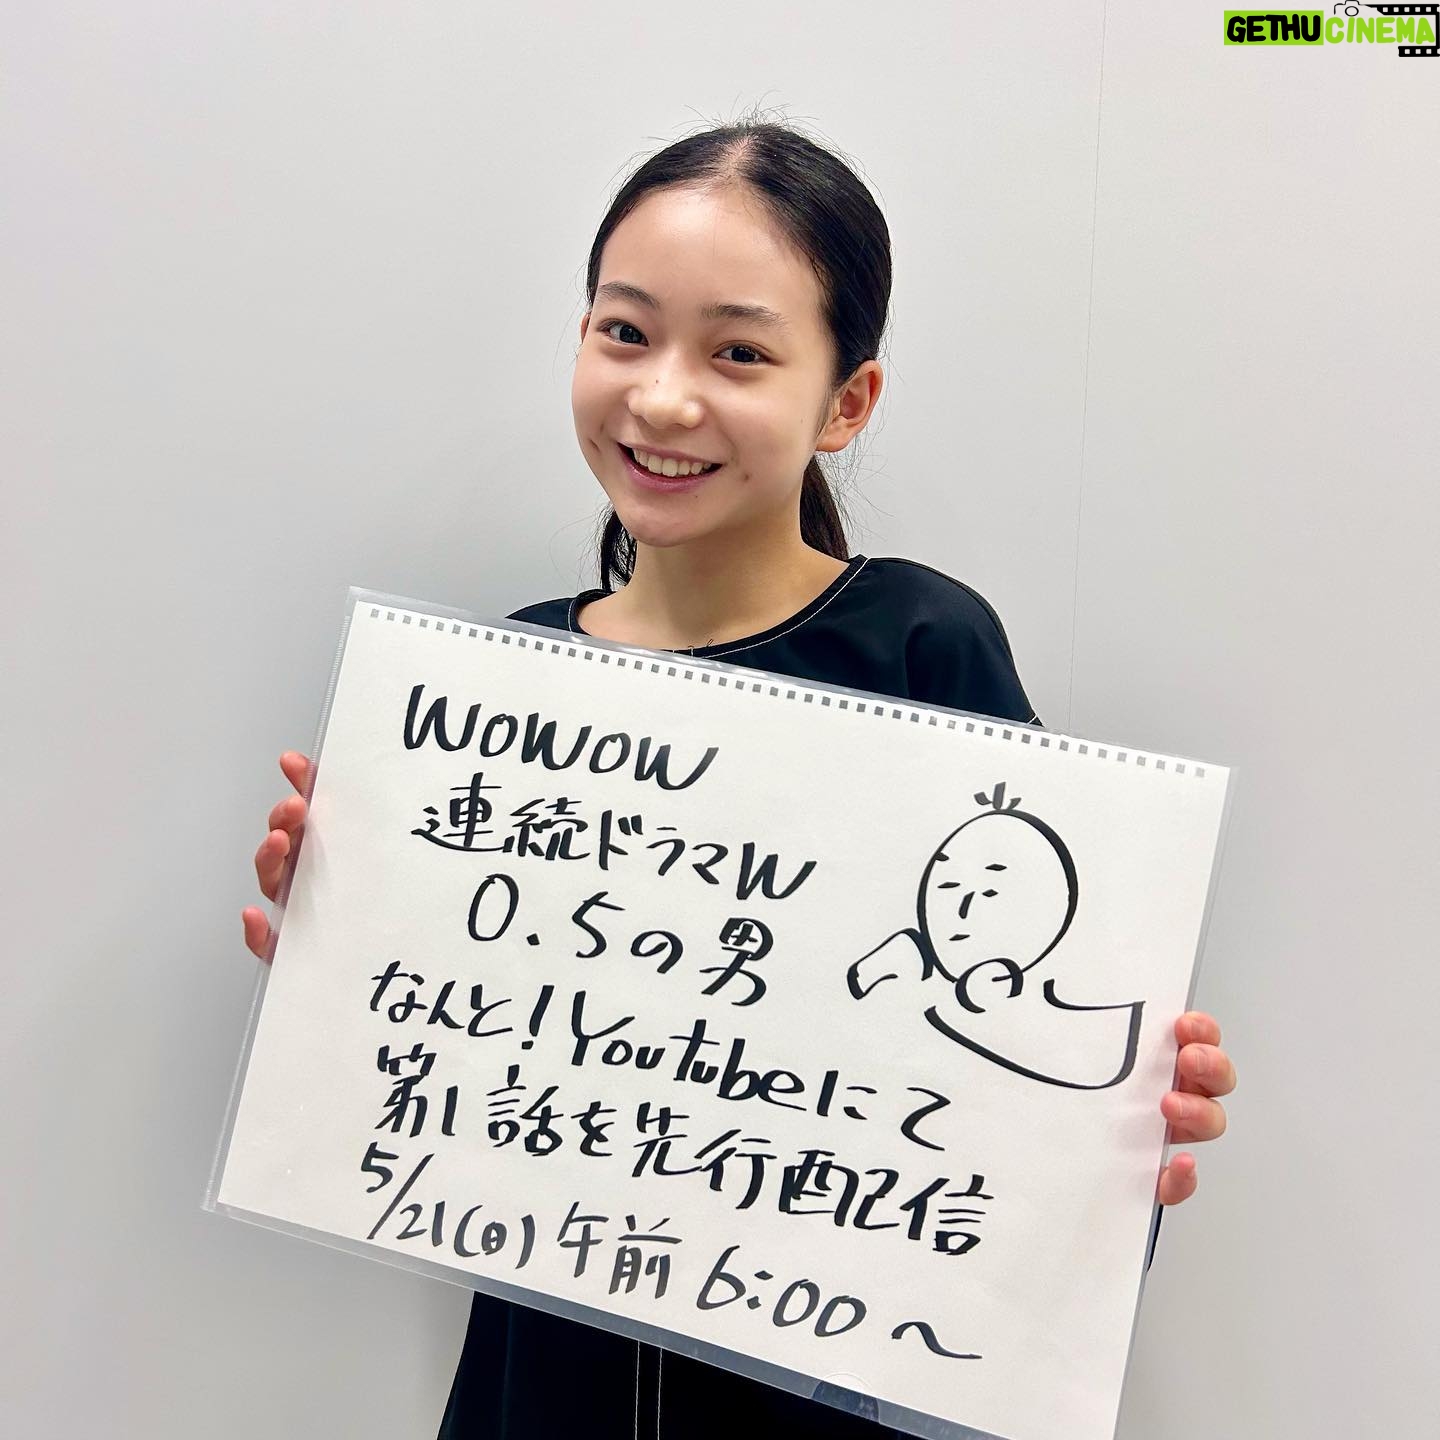 GETHUCINEMA
WOWOW
連続ドラマW
0.5の男
なんと!Youtubeにて
第1話を先行配信
5/21(日)午前6:00~